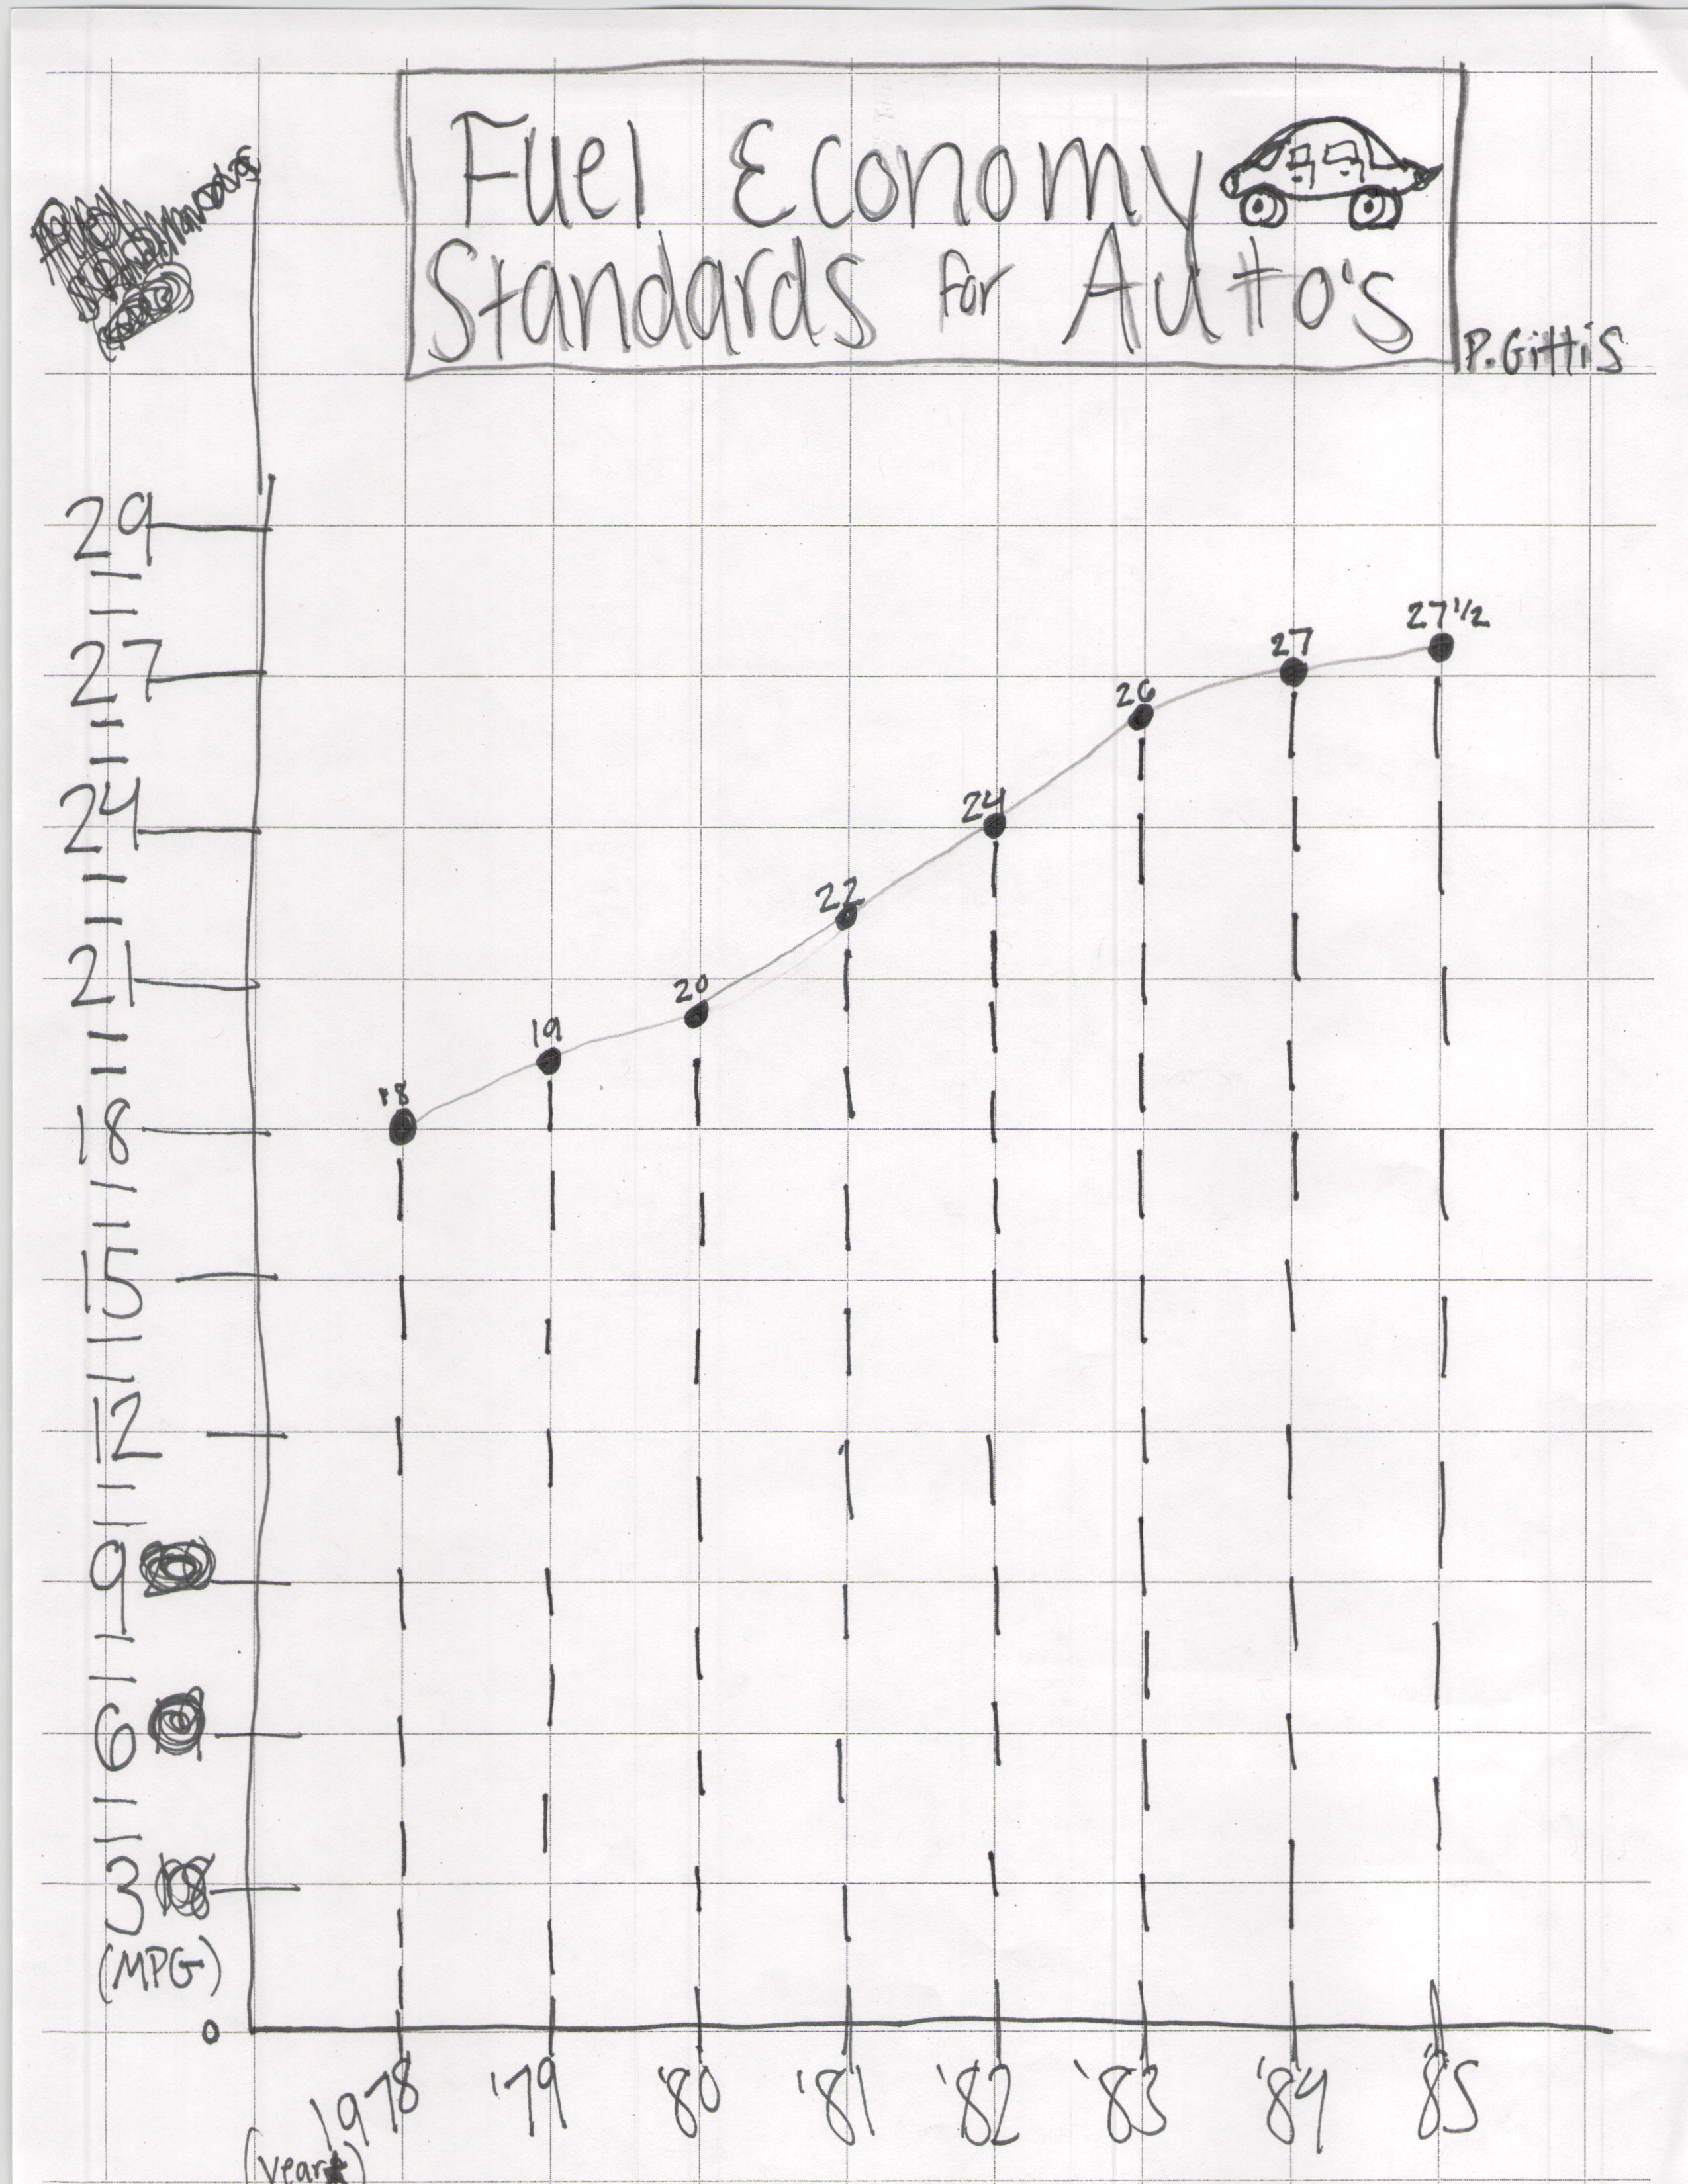 Fuel Economy
Standards for Auto's
P. Gittis
29
27
24
21
18
15
12
9
6
3
(MPG)
0
18
19
20
22
24
26
27
27 1/2
1978 '79 '80 '81 '82 '83 '84 '85
(year)